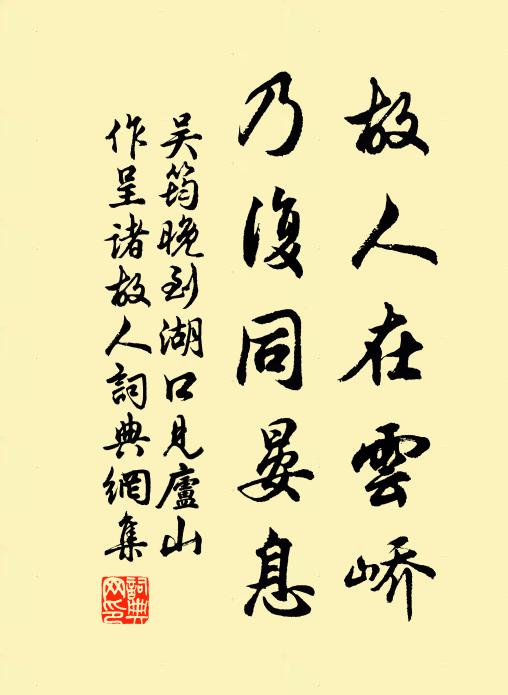 故人在雲嶠
乃復同晏息
吴筠晚到湖口見廬山
作呈诸故人詞典網集
詞典
网印